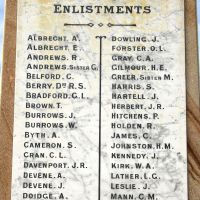 ENLISTMENTS
ALBRECHT. A.
ALBRECHT. E.
ANDREWS. R.
ANDREWS. SISTER G.
BELFORD. C.
BERRY. DR R.S.
BRADFORD. G.L.
BROWN. T.
BURROWS. J.
BURROWS. W.
BYTH. A.
CAMERON. S.
CRAN. C.L.
DAVENPORT. J.R.
DEVENE. A.
DEVENE. J.
DOIDGE. A.
DOWLING. J.
FORSTER. O.L.
GRAY. C.A.
GILMOUR. H.E.
GREER. SISTER M.
HARRIS. S.
HARTELL. J.
HERBERT. J.R.
HITCHENS. P.
HOLDEN. R.
JAMES. C.
JOHNSTON. H.M.
KENNEDY. J.
KIRK. W.A.
LATHER. L.G.
LESLIE. J.
MANN. C.M.